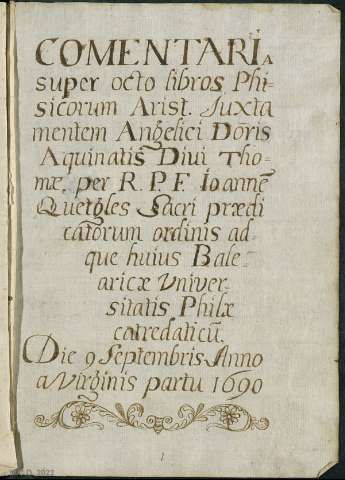 COMENTARIA
super octo libros Phi-
sicorum Arist. Juxta
mentem Angelici Dõris
Aquinatis Divi Tho-
mæ, per R. P. F. Ioannẽ
Quetgles Sacri prædi
catorum ordinis ad-
que huius Bale-
aricæ Univer-
sitatis Philæ
catredaticũ.
Die 9 Septembris Anno
a Virginis partu 1690
1
2022